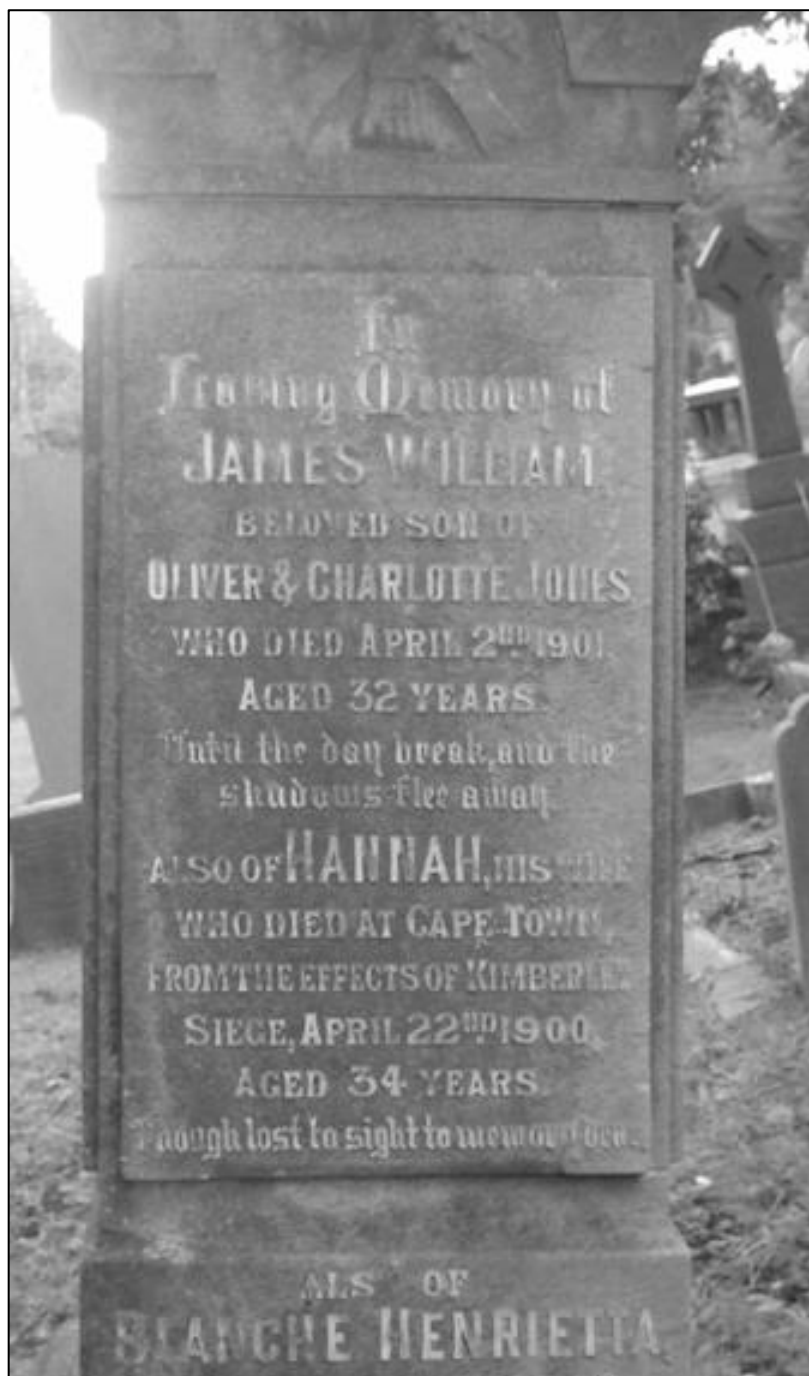 In
Loving Memory of
JAMES WILLIAM
BELOVED SON OF
OLIVER & CHARLOTTE JONES
WHO DIED APRIL 2ND 1901.
AGED 32 YEARS.
Until the day break, and the
shadows flee away.
ALSO OF HANNAH, HIS WIFE
WHO DIED AT CAPE TOWN,
FROM THE EFFECTS OF KIMBERLEY
SIEGE, APRIL 22ND 1900,
AGED 34 YEARS.
Though lost to sight to memory dear.
ALS OF
BLANCHE HENRIETTA